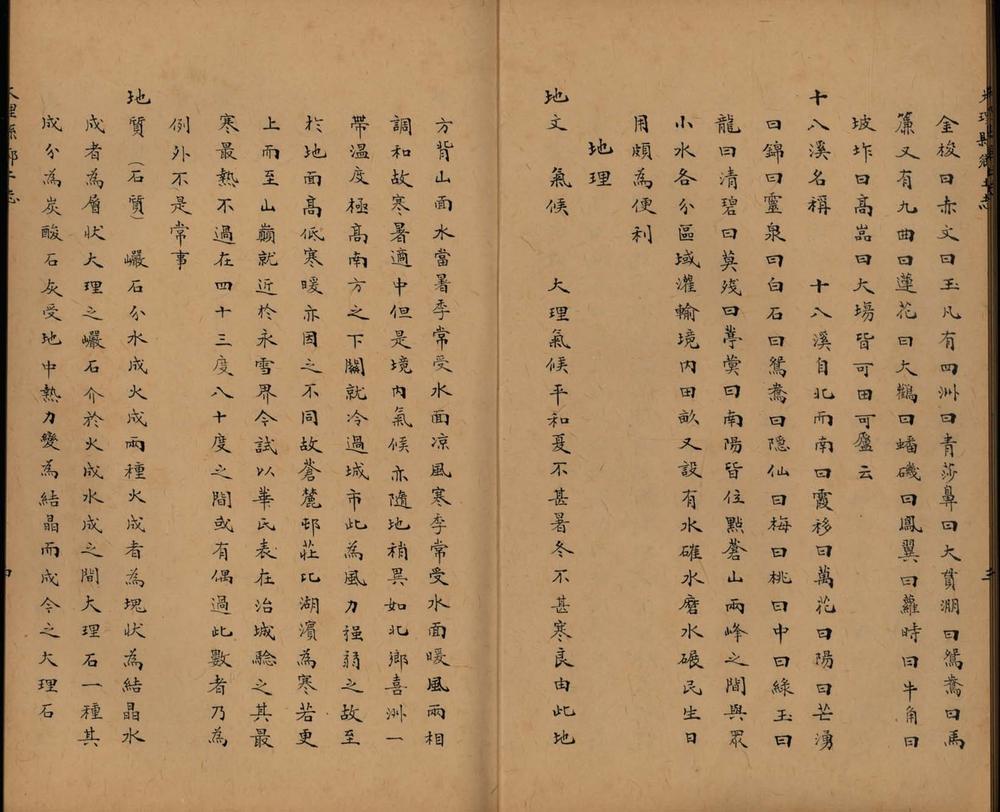 金梭曰赤文曰玉凡有四洲曰青莎鼻曰大貫淜曰鴛鴦曰馬
簾又有九曲曰蓮花曰大鸛曰蟠磯曰鳳翼曰蘿時曰牛角曰
坡㘰曰高嵓曰大塲皆可田可廬云
十八溪名稱 十八溪自北而南曰霞移曰萬花曰陽曰芒湧
曰錦曰靈泉曰白石曰鴛鴦曰隱仙曰梅曰桃曰中曰綠玉曰
龍曰清碧曰莫殘曰葶蓂曰南陽皆位㸃蒼山兩峰之間與眾
小水各分區域灌輸境內田畝又設有水碓水磨水碾民生日
用頗為便利
地理
地文 氣候 大理氣候平和夏不甚暑冬不甚寒良由此地
方背山面水當暑季常受水面凉風寒季常受水面暖風兩相
調和故寒暑適中但是境內氣候亦隨地稍異如北鄉喜洲一
帶溫度極高南方之下關就冷過城市此為風力强弱之故至
於地面高低寒暖亦因之不同故蒼麓邨莊比湖濱為寒若更
上而至山巔就近於永雪界今試以華氏表在治城驗之其最
寒最熱不過在四十三度八十度之間或有偶過此數者乃為
例外不是常事
地質（石質）巖石分水成火成兩種火成者為塊狀為結晶水
成者為層狀大理之巖石介於火成水成之間大理石一種其
成分為炭酸石灰受地中熱力變為結晶而成今之大理石